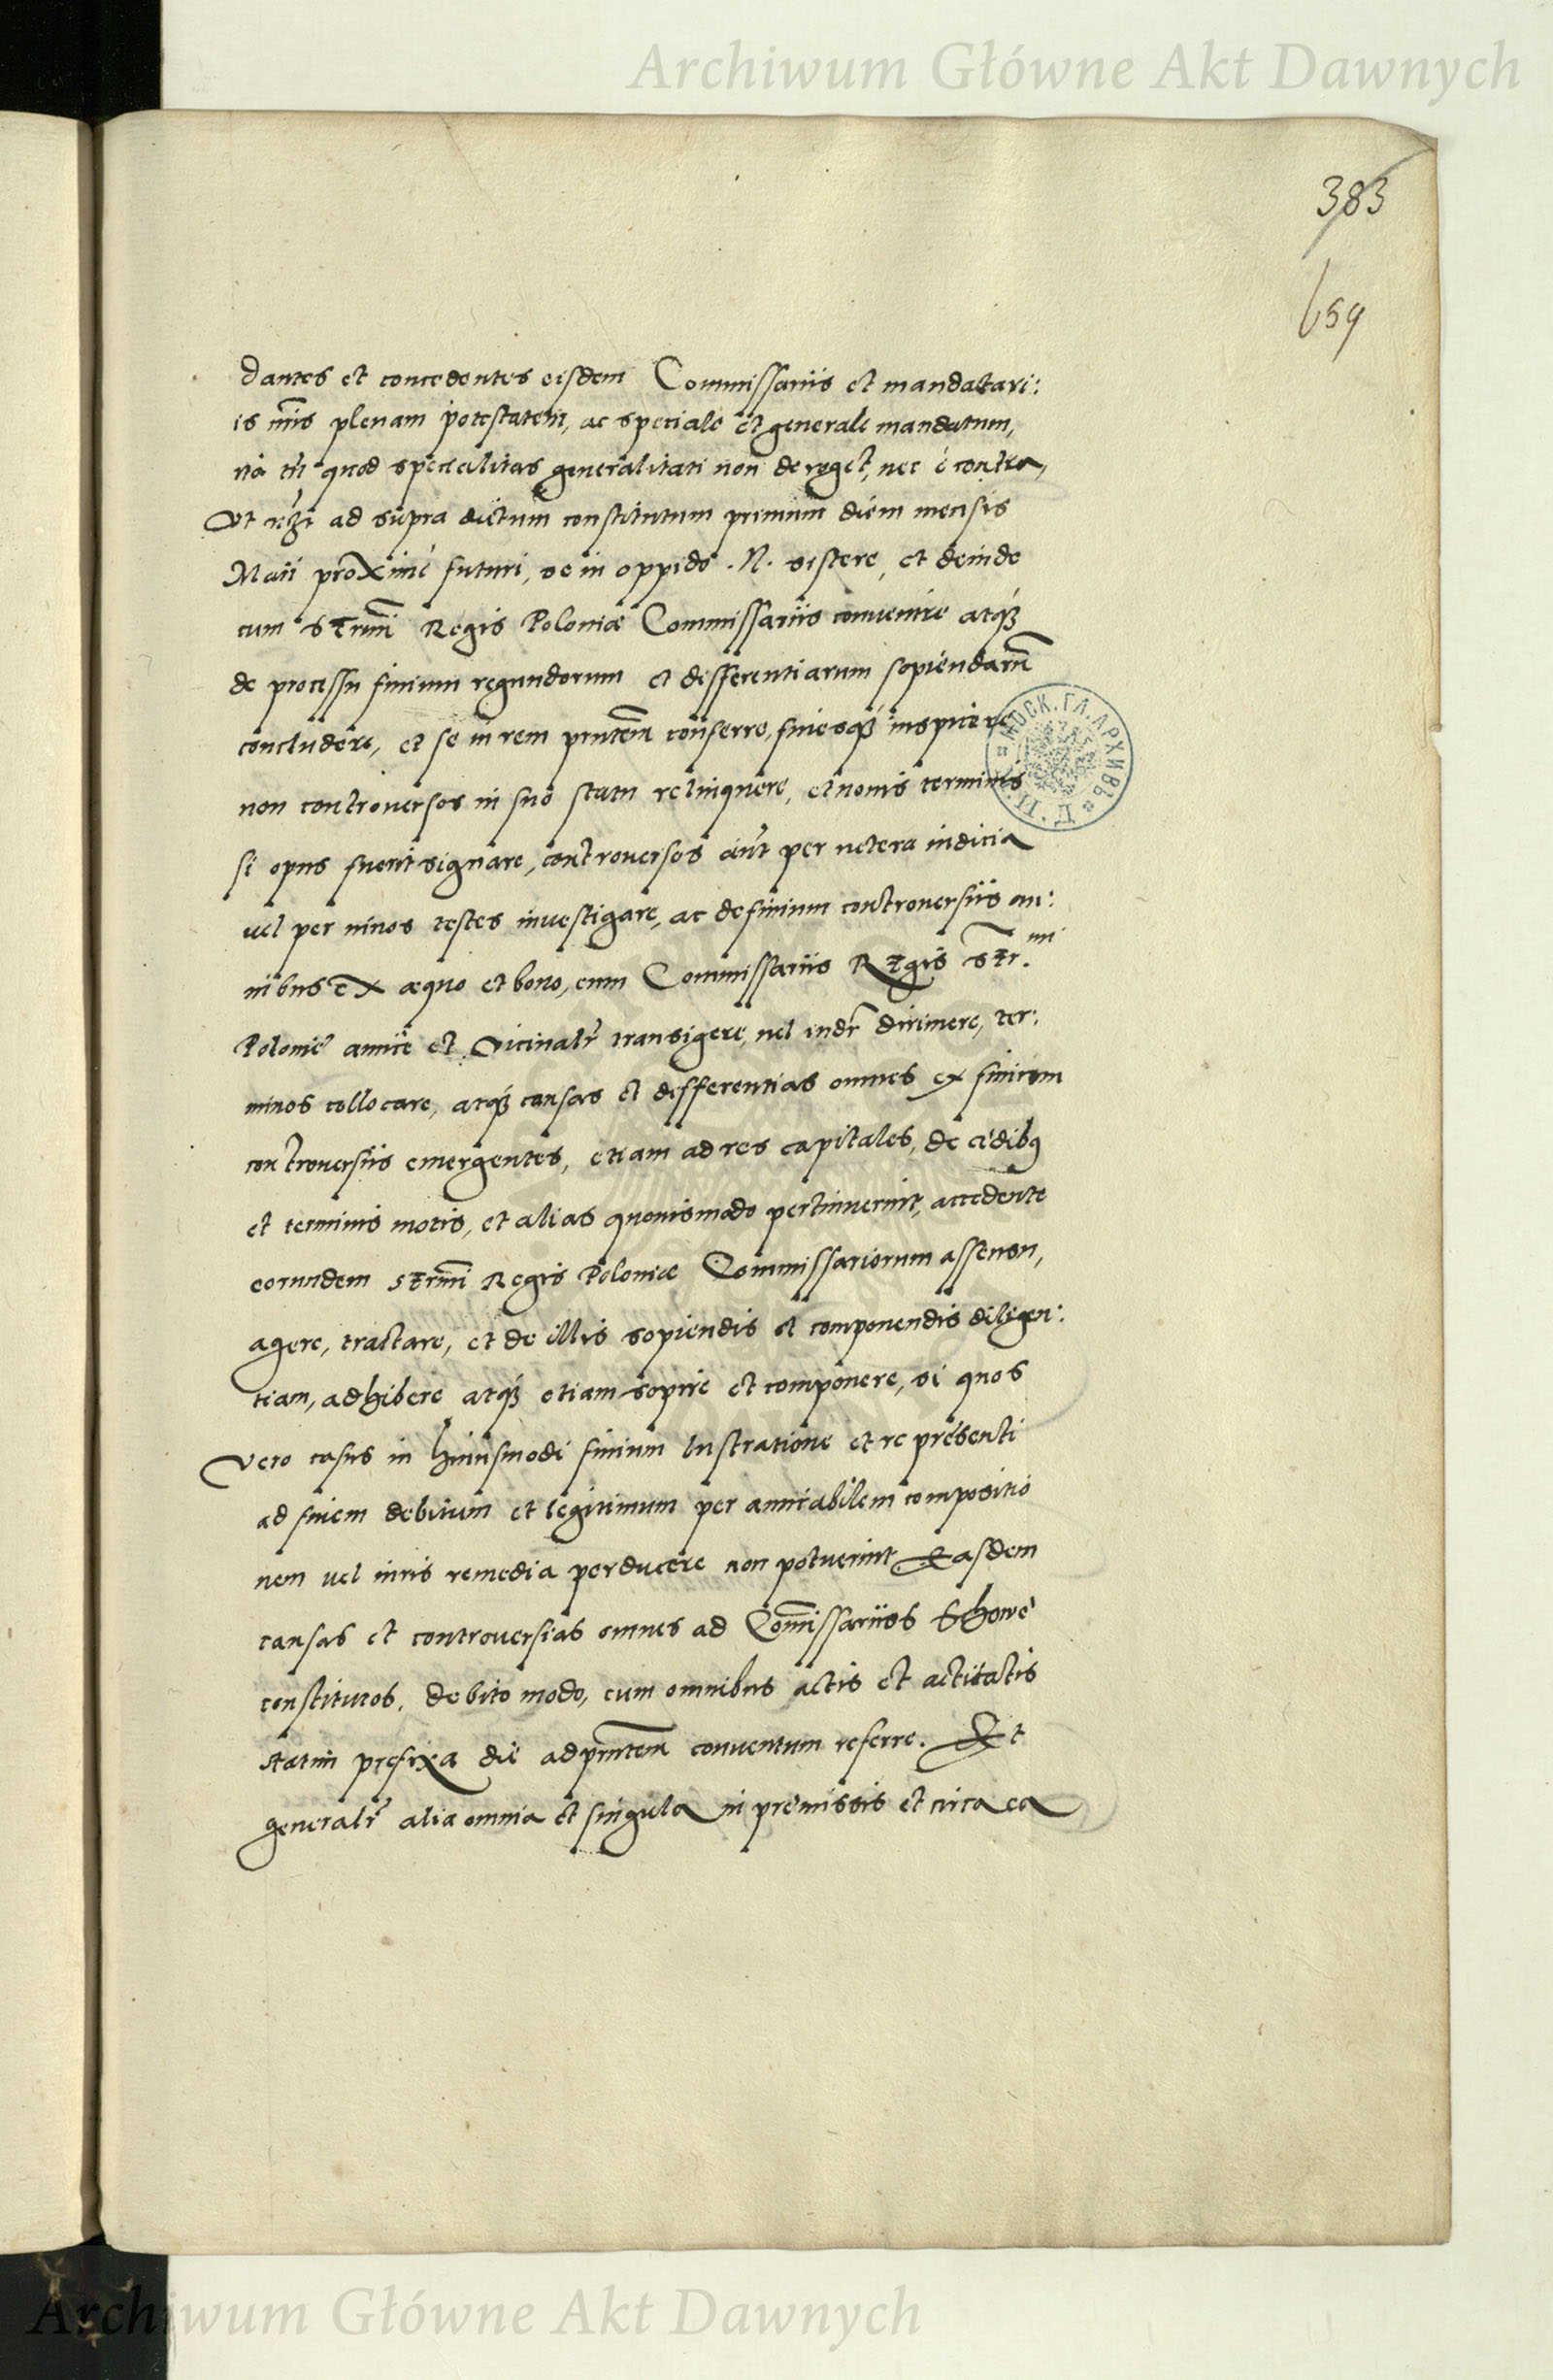 Archiwum Główne Akt Dawnych
383
659
dantes et concedentes eisdem Commissariis et mandatari:
is nr̄is plenam potestatem, ac speciale et generale mandatum,
ita tn̄ quod specialitas generalitati non deroget, nec è contra,
Vt ad supra dictum constitutum primum diem mensis
Maii proximè futuri, se in oppido .N. sistere, et deinde
cum Ser̄mi Regis Poloniæ Commissariis convenire atq́
de processu finium regundorum et differentiarum sopiendarū
concludere, et se in rem pn̄tem conferre, finesq́ inspicere
non controversos in suo statu relinquere, et novis terminis
si opus fuerit signare, controversos aūt per vetera indicia
vel per vivos testes investigare, ac de finium controversiis om:
nibus ex æquo et bono, cum Commissariis Regis Ser.mi
Polonię amicè et vicinalr̄ transigere, vel dirimere, ter:
minos collocare, atq́ causas et differentias omnes ex finium
controversiis emergentes, etiam ad res capitales, de cędibꝫ
et terminis motis, et alias quovismodo pertinuerint, accedente
eorundem Ser̄mi Regis Poloniæ Commissariorum assensu,
agere, tractare, et de illis sopiendis et componendis diligen:
tiam, adhibere atq́ etiam sopire et componere, si quos
vero casus in huiusmodi finium lustratione et re presenti
ad finem debitum et legitimum per amicabilem compositio
nem vel iuris remedia perducere non potuerint Easdem
causas et controversias omnes ad Com̄issariios
constitutos, debito modo, cum omnibus actis et actitatis
statim prefixa die ad pn̄tem conventum referre. Et
generalr̄ alia omnia et singula in premissis et circa ea
МОСК.ГЛ.АРХИВЪ
Archiwum Główne Akt Dawnych